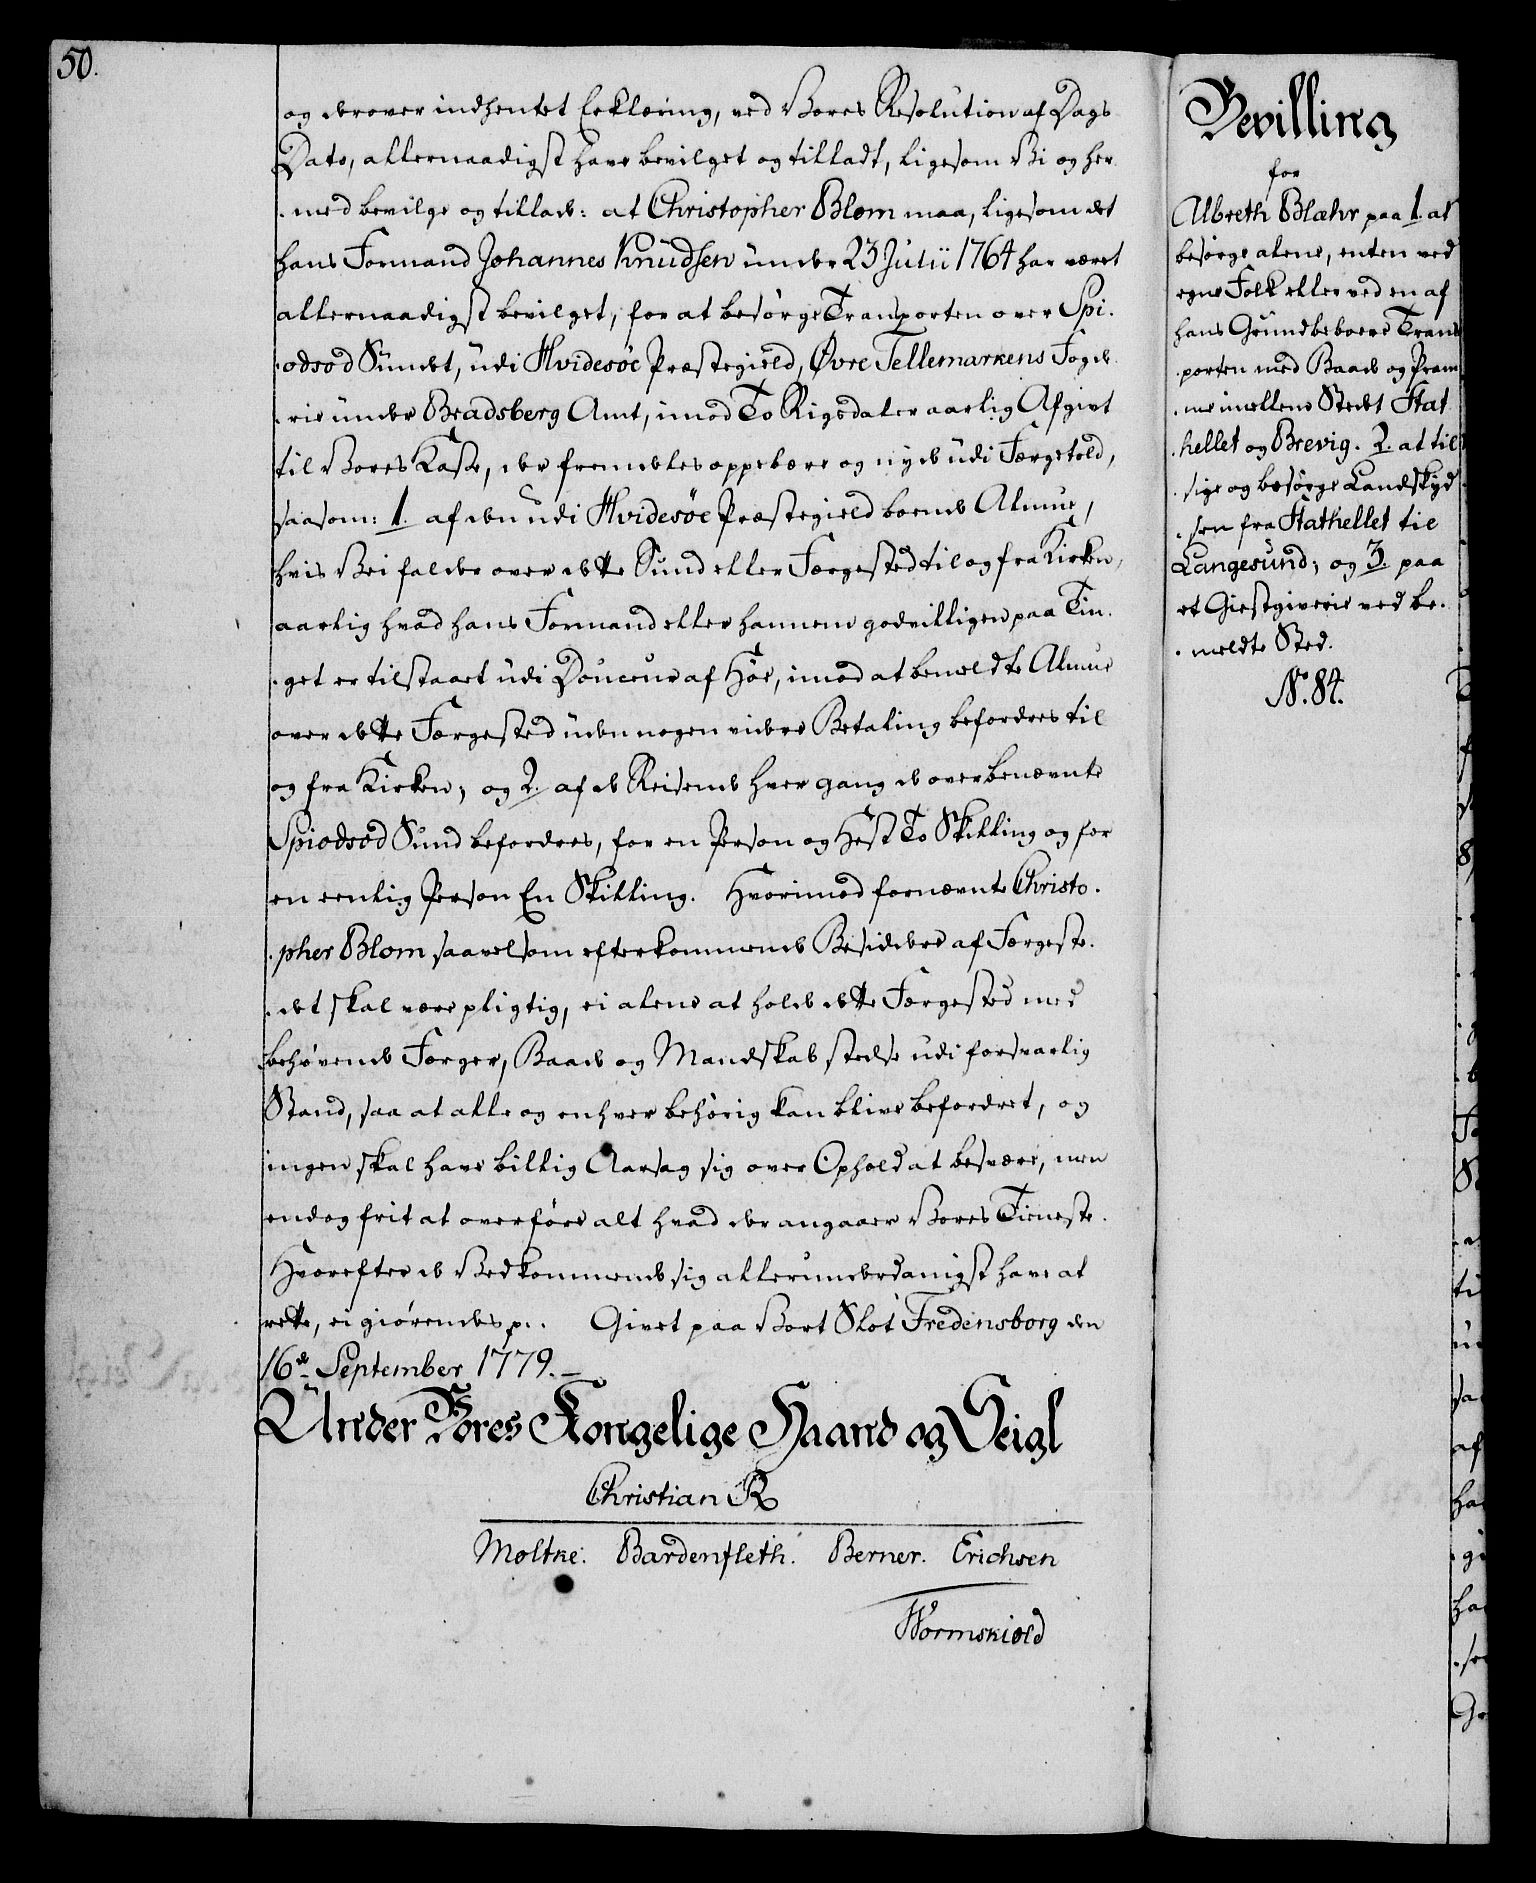 50.
og derover indhentet Erklæring, ved Vores Resolution af Dags
Dato, allernaadigst have bevilget og tilladt, ligesom Vi og her-
-med bevilge og tillade: at Christopher Blom maa, ligesom det
hans Formand Johannes Knudsen under 23 Julii 1764 har været
allernaadigst bevilget, for at besørge Transporten over Spi-
-odsod Sundet, udi Hvidesøe Præstegield, Øvre Tellemarkens Foged-
-rie under Bradsberg Amt, imod To Rigsdaler aarlig Afgivt
til Vores Kasse, der fremdeles oppebære og nyde udi Færgetold,
saasom: 1. af den udi Hvidesøe Præstegield boende Almue,
hvis Vei falder over dette Sund eller Færgested til og fra Kirken,
aarlig hvad hans Formand eller hannem godvilligen paa Tin-
-get er tilstaaet udi Douceur af Høe, imod at bemeldte Almue
over dette Færgested uden nogen videre Betaling befordres til
og fra Kirken; og 2. af de Reisende hver gang de over benævnte
Spiodsod Sund befordres, for en Person og Hest To Skilling og for
en eenlig Person En Skilling. Hvorimod fornævnte Christo-
-pher Blom saavelsom efterkommende Besiddere af Færgeste-
-det skal være pligtig, ei alene at holde dette Færgested med
behøvende Færger, Baade og Mandskab stedse udi forsvarlig
Stand, saa at alle og enhver behørig kan blive befordret, og
ingen skal have billig Aarsag sig over Ophold at besvære, men
endog frit at overføre alt hvad der angaaer Vores Tieneste.
Hvorefter de Vedkommende sig allerunderdanigst have at
rette, ei giørendes p. Givet paa Vort Slot Fredensborg den
16de September 1779.
Under Vores Kongelige Haand og Seigl
Christian R
Moltke. Bardenfleth. Berner. Erichsen
Wormskiold
Bevilling
for
Albreth Blæhr paa 1. at
besørge alene, enten ved
egne Folk eller ved en af
hans Grundbeboere Trans
-porten med Baade og Pram
-me imellem Stedet Stat
-hellet og Brevig. 2. at til
-sige og besørge Landskyd
-sen fra Stathellet til
Langesund; og 3. paa
et Giestgiverie ved be-
-meldte Sted.
No. 84.